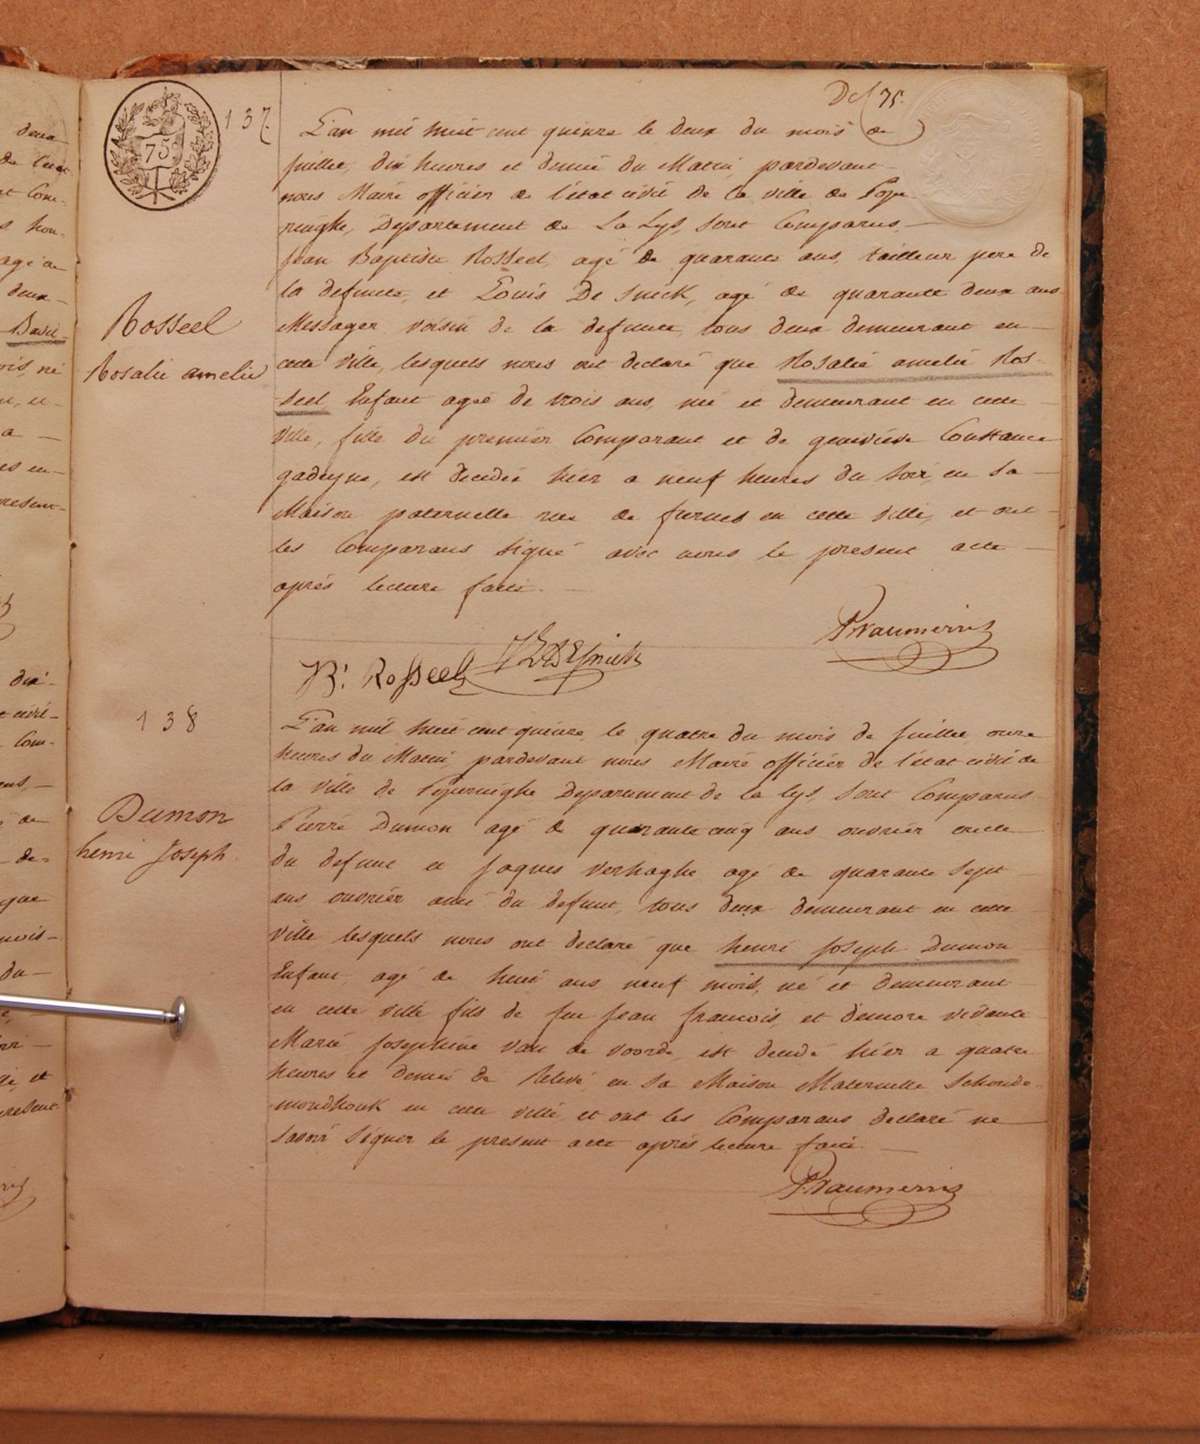 Def 75.
75
137.
L'an mil huit cent quinze le deux du mois de
juillet, dix heures et demie du Matin pardevant
nous Maire officier de l'état civil de la ville de Pope
ringhe, Departement de La Lys, sont Comparus,
Jean Baptiste Rosseel, agé de quarante ans, tailleur pere de
la defunte, et Louis De Snick, agé de quarante deux ans
Messager voisin de la defunte, tous deux demeurant en
Rosseel
Rosalie amelie
cette ville, lesquels nous ont declaré que Rosalie amelie Ros-
seel Enfant ageé de trois ans, né et demeurant en cette
ville, fille du premier Comparant et de genevieve Constance
gadeyne, est decedée hier a neuf heures du soir, en sa
Maison paternelle rue de furnes en cette ville, et ont
les Comparans signé avec nous le present acte
après lecture faite.
PVaumerris
Bt Rosseel
L DESnick
138
L'an mil huit cent quinze, le quatre du mois de juillet onze
heures du Matin pardevant nous Maire officier de l'état civil de
la ville de Poperinghe Departement de la lys, sont Comparus
Dumon
henri Joseph
Pierre Dumon agé de quarante cinq ans ouvrier oncle
du defunt et Jaques Verhaghe agé de quarante sept
ans ouvrier ami du defunt, tous deux demeurant en cette
ville lesquels nous ont declaré que henri joseph Dumon
Enfant agé de huit ans neuf mois, né et demeurant
en cette ville fils de feu Jean francois, et d'encore vivante
Marie Josephine Van de voorde, est decedé hier a quatre
heures et demie de Relevé en sa Maison Maternelle Schoude-
mondhouk en cette ville et ont les Comparans declaré ne
savoir signer le present acte après lecture faite.
PVaumerris
deux
de l'etat
et Com-
agé de
deux
David
ois, né
a
es en-
present-
dix
civil-
Com-
de
de-
que
mois-
du
et
present